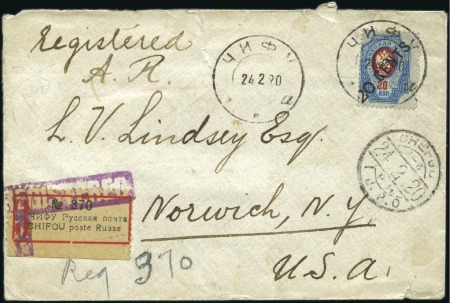 Registered
A. R.
ЧИФУ
24 2 20
a
ЧИФУ
20
КОП
L. V. Lindsey Esq.
№ 370
ЧИФУ Русская почта
CHIFOU poste Russe
Norwich, N. Y.
U. S. A.
Reg 370